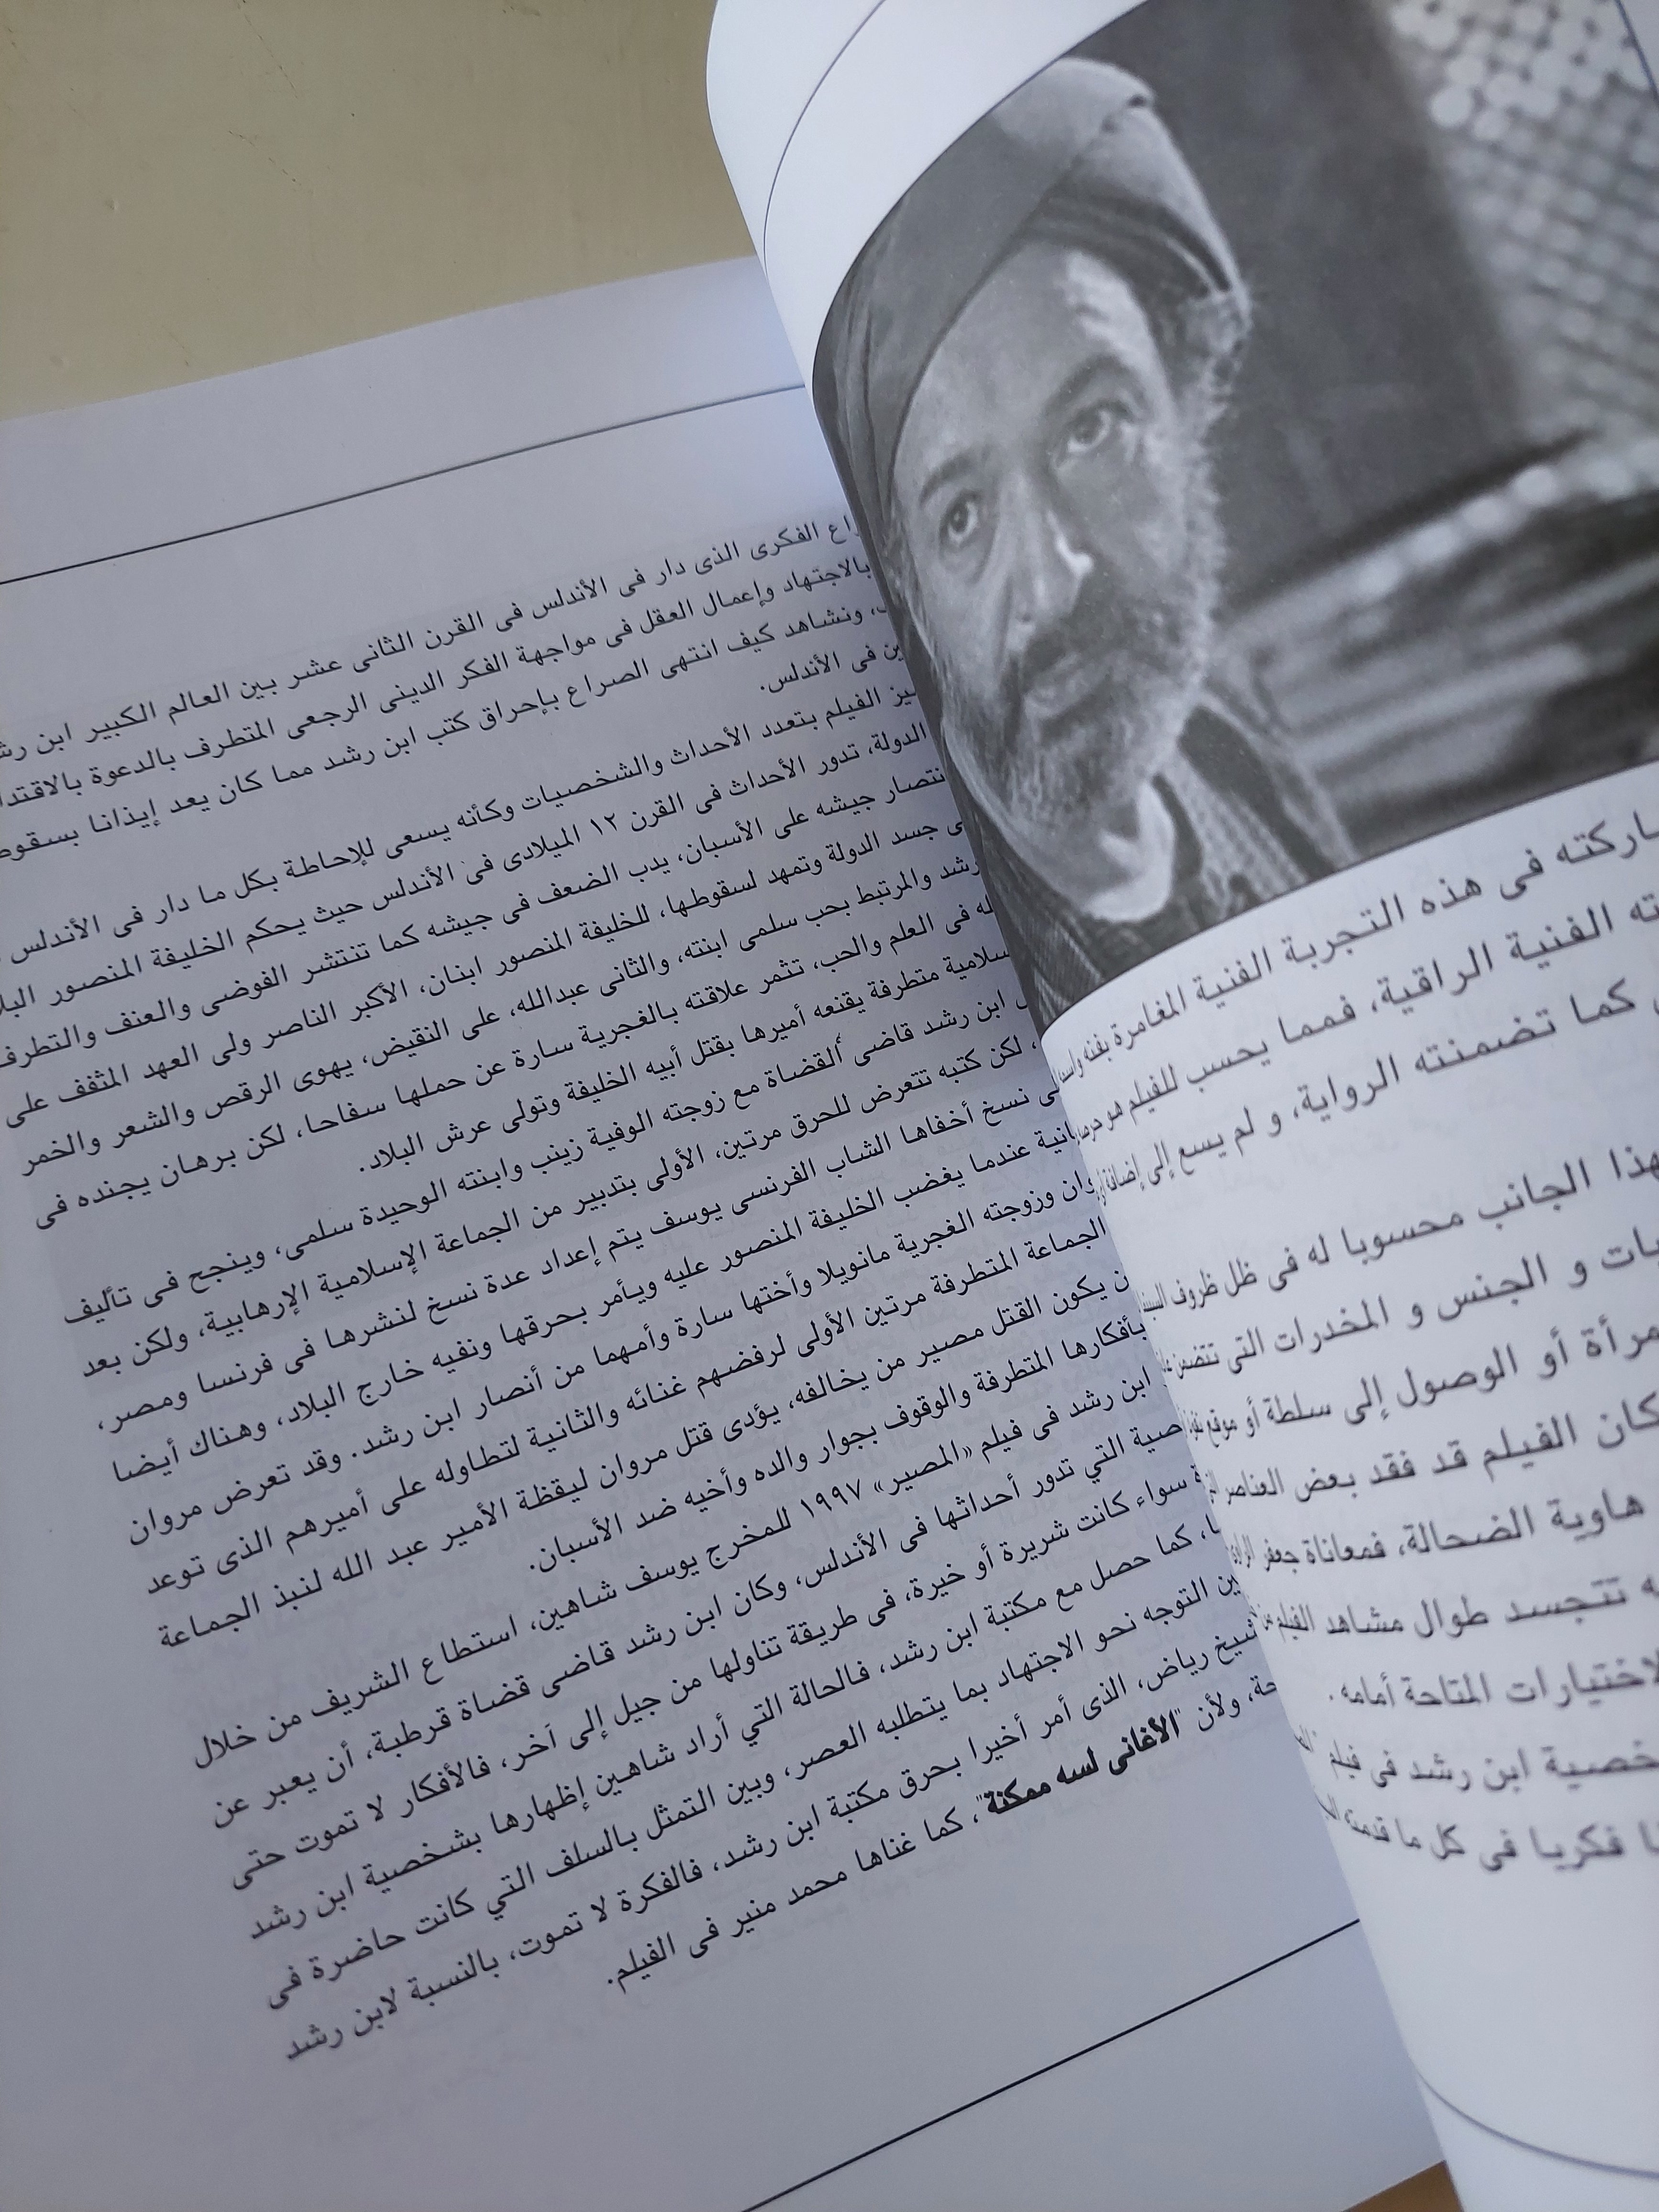 اركته فى هذه التجربة الفنية المغامرة بفنه
ته الفنية الراقية، فمما يحسب للفيلم هو
كما تضمنته الرواية، و لم يسع إلى إضافة
هذا الجانب محسوبا له فى ظل ظروف
ات و الجنس و المخدرات التى تتضمن
مرأة أو الوصول إلى سلطة أو موقع
كان الفيلم قد فقد بعض العناصر
هاوية الضحالة، فمعاناة جعفر
ه تتجسد طوال مشاهد الفيلم
لاختيارات المتاحة أمامه.
خصية ابن رشد فى فيلم
ا فكريا فى كل ما قدمته
اع الفكرى الذى دار فى الأندلس فى القرن الثانى عشر بين العالم الكبير ابن رش
بالاجتهاد وإعمال العقل فى مواجهة الفكر الدينى الرجعى المتطرف بالدعوة بالاقتدا
، ونشاهد كيف انتهى الصراع بإحراق كتب ابن رشد مما كان يعد إيذانا بسقوط
ين فى الأندلس.
يز الفيلم بتعدد الأحداث والشخصيات وكأنه يسعى للإحاطة بكل ما دار فى الأندلس
الدولة، تدور الأحداث فى القرن ١٢ الميلادى فى الأندلس حيث يحكم الخليفة المنصور البلا
نتصار جيشه على الأسبان، يدب الضعف فى جيشه كما تنتشر الفوضى والعنف والتطرف
ى جسد الدولة وتمهد لسقوطها، للخليفة المنصور ابنان، الأكبر الناصر ولى العهد المثقف على
رشد والمرتبط بحب سلمى ابنته، والثانى عبدالله، على النقيض، يهوى الرقص والشعر والخمر
له فى العلم والحب، تثمر علاقته بالغجرية سارة عن حملها سفاحا، لكن برهان يجنده فى
سلامية متطرفة يقنعه أميرها بقتل أبيه الخليفة وتولى عرش البلاد.
ابن رشد قاضى القضاة مع زوجته الوفية زينب وابنته الوحيدة سلمى، وينجح فى تأليف
، لكن كتبه تتعرض للحرق مرتين، الأولى بتدبير من الجماعة الإسلامية الإرهابية، ولكن بعد
ى نسخ أخفاها الشاب الفرنسى يوسف يتم إعداد عدة نسخ لنشرها فى فرنسا ومصر،
انية عندما يغضب الخليفة المنصور عليه ويأمر بحرقها ونفيه خارج البلاد، وهناك أيضا
وان وزوجته الغجرية مانويلا وأختها سارة وأمهما من أنصار ابن رشد. وقد تعرض مروان
الجماعة المتطرفة مرتين الأولى لرفضهم غنائه والثانية لتطاوله على أميرهم الذى توعد
ن يكون القتل مصير من يخالفه، يؤدى قتل مروان ليقظة الأمير عبد الله لنبذ الجماعة
بأفكارها المتطرفة والوقوف بجوار والده وأخيه ضد الأسبان.
ابن رشد فى فيلم «المصير» ١٩٩٧ للمخرج يوسف شاهين، استطاع الشريف من خلال
صية التي تدور أحداثها فى الأندلس، وكان ابن رشد قاضى قضاة قرطبة، أن يعبر عن
ة سواء كانت شريرة أو خيرة، فى طريقة تناولها من جيل إلى آخر، فالأفكار لا تموت حتى
ا، كما حصل مع مكتبة ابن رشد، فالحالة التي أراد شاهين إظهارها بشخصية ابن رشد
ين التوجه نحو الاجتهاد بما يتطلبه العصر، وبين التمثل بالسلف التي كانت حاضرة فى
شيخ رياض، الذى أمر أخيرا بحرق مكتبة ابن رشد، فالفكرة لا تموت، بالنسبة لابن رشد
حة، ولأن "الأغانى لسه ممكنة"، كما غناها محمد منير فى الفيلم.